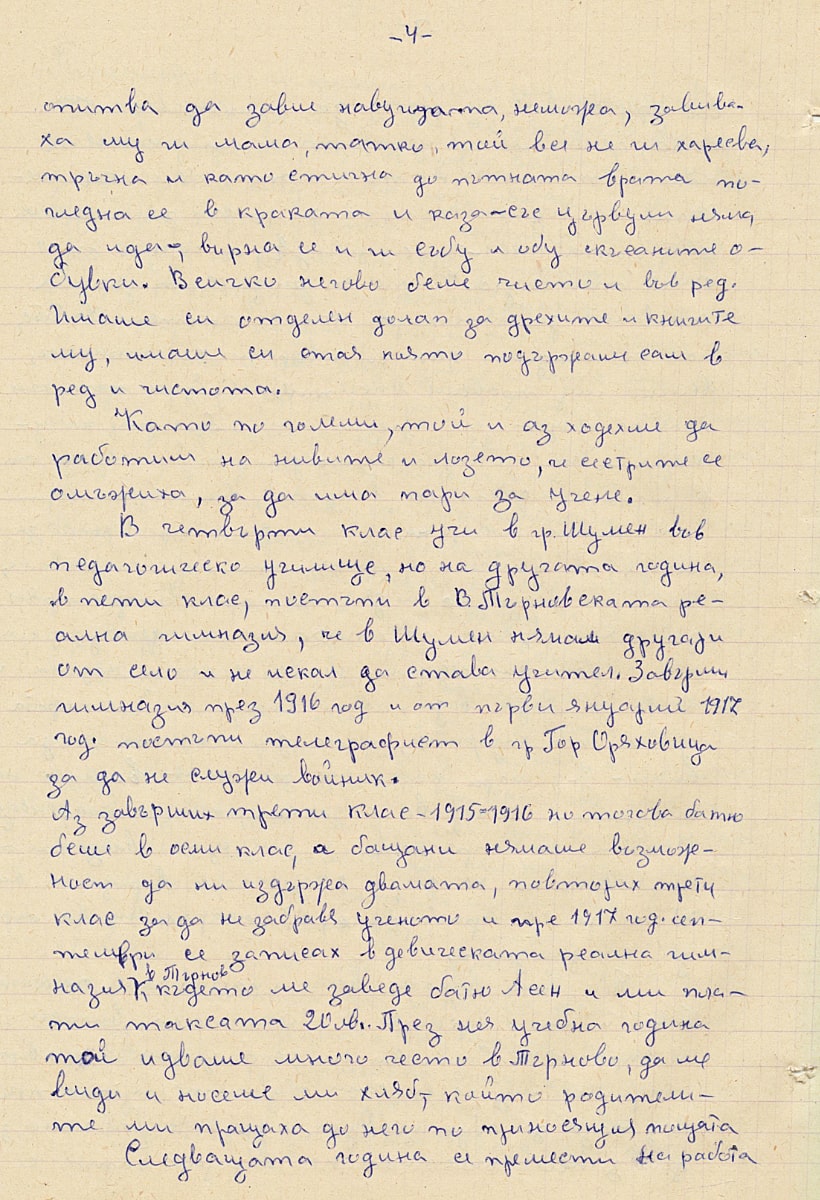 -4-
опитва да завие навущата, неможа, завива-
ха му ги мама, татко, той все не ги харесва,
тръгна и като стигна до пътната врата по-
гледна се в краката и каза-със цървули няма
да ида-, върна се и ги събу и обу скъсаните о-
бувки. Всичко негово беше чисто и във ред.
Имаше си отделен долап за дрехите и книгите
му, имаше си стая която подържаше сам в
ред и чистота.
Като по големи, той и аз ходехме да
работим на нивите и лозето, че сестрите се
омъжиха, за да има пари за учене.
В четвърти клас учи в гр. Шумен във
педагогическо училище, но на другата година,
в пети клас, постъпи в В.Търновската ре-
ална гимназия, че в Шумен нямал другари
от село и не искал да става учител. Завърши
гимназия през 1916 год и от първи януарий 1917
год. постъпи телеграфист в гр Гор Оряховица
за да не служи войник.
Аз завърших трети клас-1915-1916 но тогова батю
беше в осми клас, а бащани нямаше възмож-
ност да ни издържа двамата, повторих трети
клас за да не забравя ученото и пре 1917 год. сеп-
тември се записах в девическата реална гим-
назия в Търнов, където ме заведе батю Асен и ми пла-
ти таксата 20лв.. През нея учебна година
той идваше много често в Търново, да ме
види и носеше ми хляб, който родители-
те ми пращаха до него по приносящия пощата
Следващата година се премести на работа